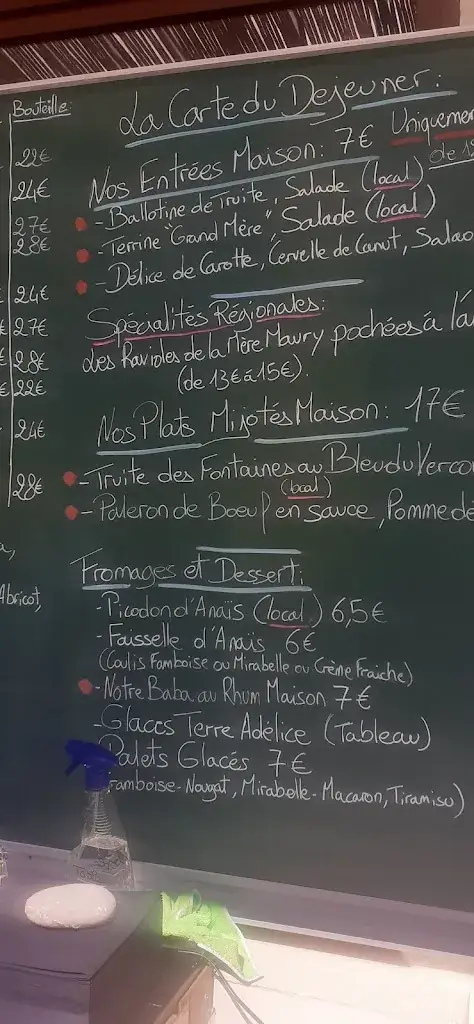 Bouteille:
22€
24€
27€
28€
24€
27€
28€
22€
24€
28€
Abricot,
La Carte du Dejeuner:
Nos Entrées Maison: 7€ Uniquemen
de 12
- Ballotine de Truite, Salade (local)
- Terrine "Grand Mère", Salade (local)
- Délice de Carotte, Cervelle de Canut, Salad
Spécialités Régionales:
Les Ravioles de la Mère Maury pochées à l'a
(de 13€ à 15€).
Nos Plats Mijotés Maison: 17€
- Truite des Fontaines au Bleu du Verco
(local)
- Paleron de Boeuf en sauce, Pomme de
Fromages et Dessert:
- Picodon d'Anaïs (local) 6,5€
- Faisselle d'Anaïs 6€
(Coulis Framboise ou Mirabelle ou Crème Fraiche)
- Notre Baba au Rhum Maison 7€
- Glaces Terre Adélice (Tableau)
Palets Glacés 7€
Framboise-Nougat, Mirabelle-Macaron, Tiramisu)